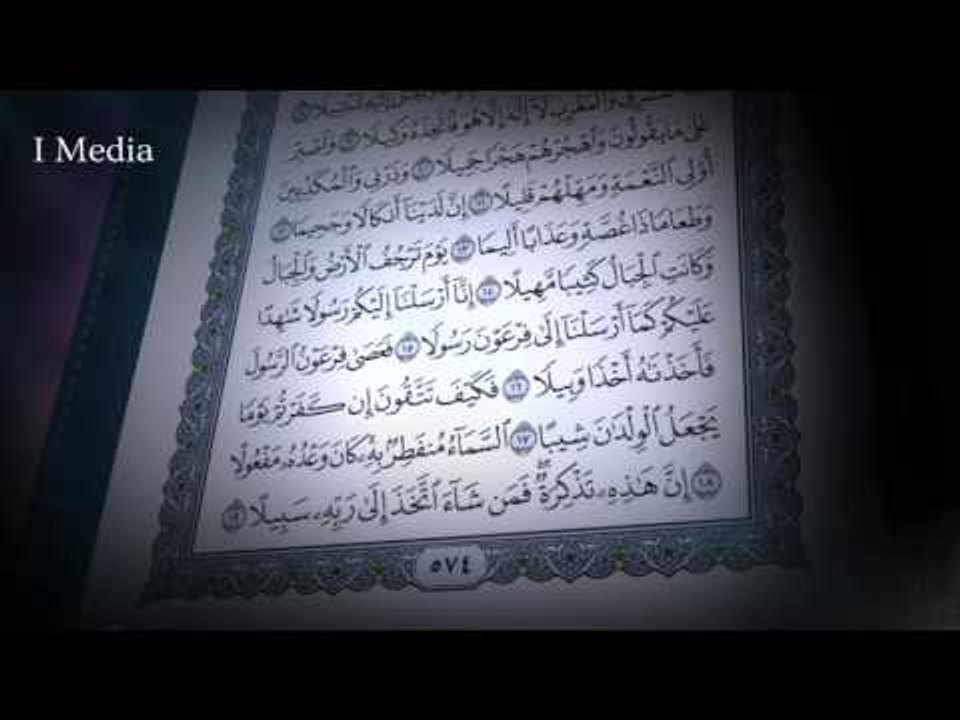 I Media
ٱلْمَشْرِقِ وَٱلْمَغْرِبِ لَآ إِلَٰهَ إِلَّا هُوَ فَٱتَّخِذْهُ وَكِيلًا ۝٩ وَٱصْبِرْ
عَلَىٰ مَا يَقُولُونَ وَٱهْجُرْهُمْ هَجْرًا جَمِيلًا ۝١٠ وَذَرْنِى وَٱلْمُكَذِّبِينَ
أُو۟لِى ٱلنَّعْمَةِ وَمَهِّلْهُمْ قَلِيلًا ۝١١ إِنَّ لَدَيْنَآ أَنكَالًا وَجَحِيمًا ۝١٢
وَطَعَامًا ذَا غُصَّةٍ وَعَذَابًا أَلِيمًا ۝١٣ يَوْمَ تَرْجُفُ ٱلْأَرْضُ وَٱلْجِبَالُ
وَكَانَتِ ٱلْجِبَالُ كَثِيبًا مَّهِيلًا ۝١٤ إِنَّآ أَرْسَلْنَآ إِلَيْكُمْ رَسُولًا شَٰهِدًا
عَلَيْكُمْ كَمَآ أَرْسَلْنَآ إِلَىٰ فِرْعَوْنَ رَسُولًا ۝١٥ فَعَصَىٰ فِرْعَوْنُ ٱلرَّسُولَ
فَأَخَذْنَٰهُ أَخْذًا وَبِيلًا ۝١٦ فَكَيْفَ تَتَّقُونَ إِن كَفَرْتُمْ يَوْمًا
يَجْعَلُ ٱلْوِلْدَٰنَ شِيبًا ۝١٧ ٱلسَّمَآءُ مُنفَطِرٌۢ بِهِۦ كَانَ وَعْدُهُۥ مَفْعُولًا
۝١٨ إِنَّ هَٰذِهِۦ تَذْكِرَةٌ ۖ فَمَن شَآءَ ٱتَّخَذَ إِلَىٰ رَبِّهِۦ سَبِيلًا ۝١٩
٥٧٤